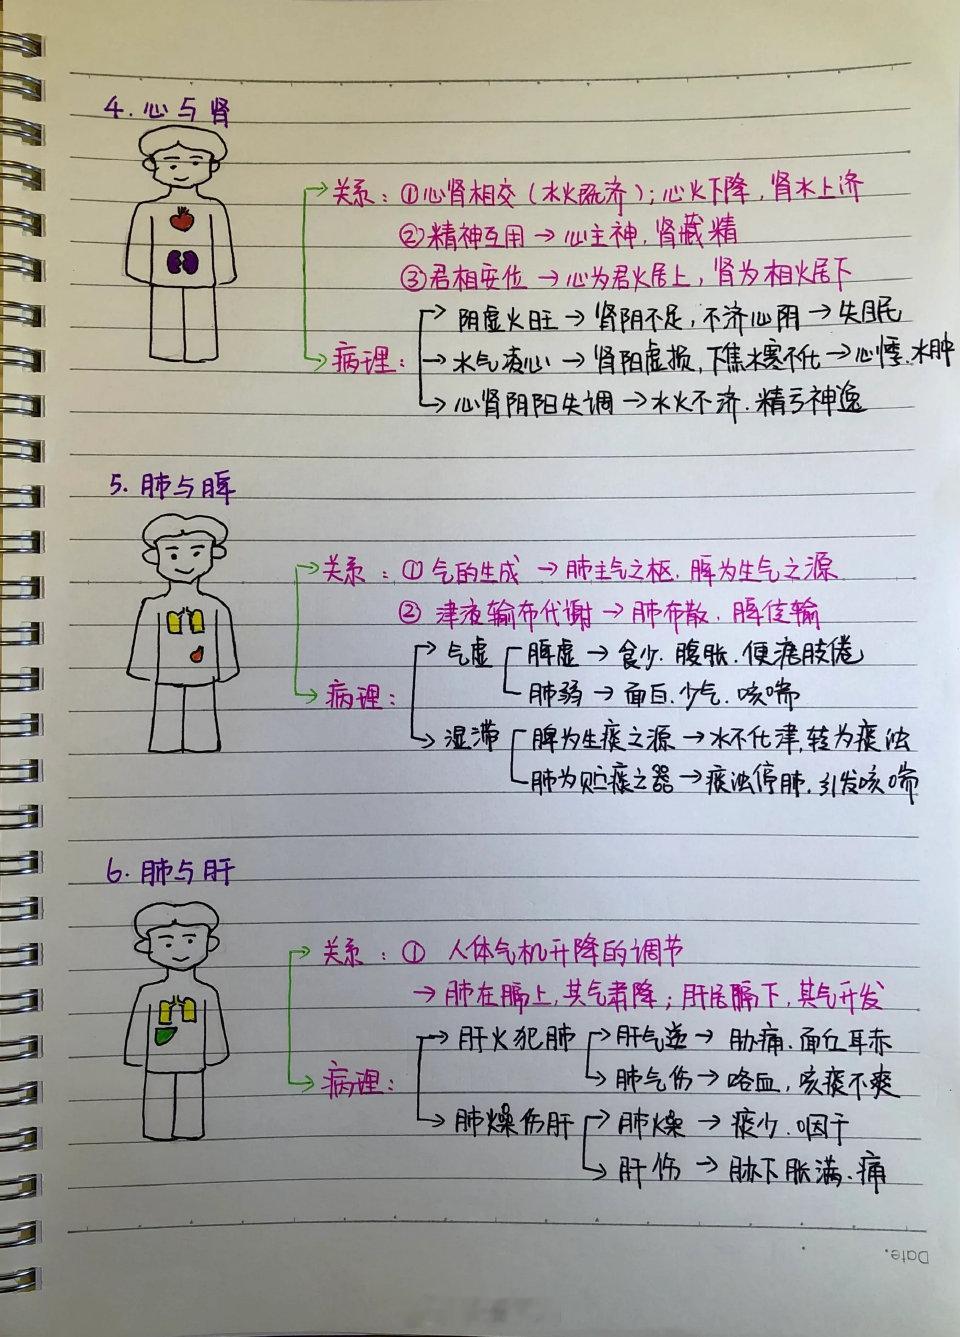 4. 心与肾
关系：①心肾相交（水火既济）；心火下降，肾水上济
②精神互用→心主神，肾藏精
③君相安位→心为君火居上，肾为相火居下
病理：
阴虚火旺→肾阴不足，不济心阴→失眠
水气凌心→肾阳虚损，下焦水寒不化→心悸、水肿
心肾阴阳失调→水火不济、精亏神逸
5. 肺与脾
关系：①气的生成→肺主气之枢、脾为生气之源
②津液输布代谢→肺布散、脾传输
病理：
气虚
脾虚→食少、腹胀、便溏肢倦
肺弱→面白、少气、咳喘
湿滞
脾为生痰之源→水不化津，转为痰浊
肺为贮痰之器→痰浊停肺，引发咳喘
6. 肺与肝
关系：① 人体气机升降的调节
→肺在膈上，其气肃降；肝居膈下，其气升发
病理：
肝火犯肺
肝气逆→胁痛、面红耳赤
肺气伤→咯血，咳痰不爽
肺燥伤肝
肺燥→痰少、咽干
肝伤→胁下胀满、痛
Date.